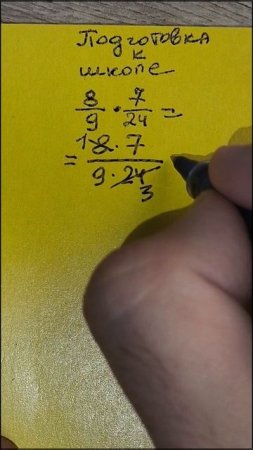 Подготовка
к
школе
8/9 · 7/24 =
= 1 8 · 7 / 9 · 24 3